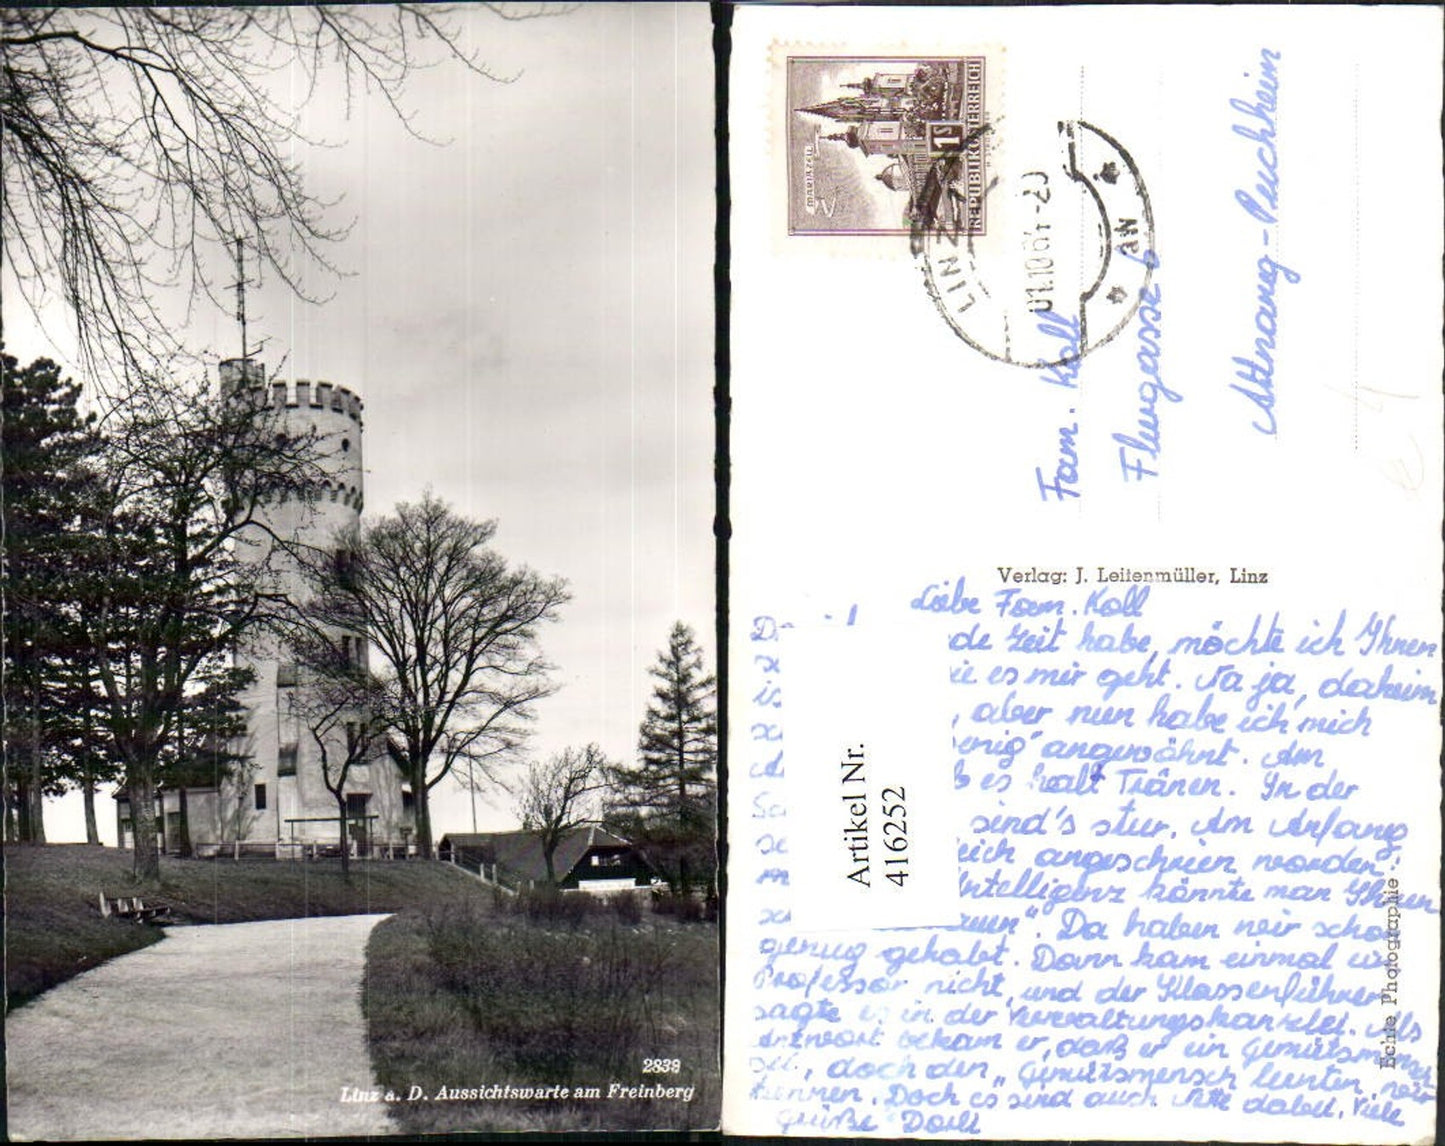 2838
Linz a. D. Aussichtswarte am Freinberg
MARIAZELL
1 S
REPUBLIK ÖSTERREICH
LINZ
01.10.61-20
Fam. Koll
Flurgasse 6
Attnang-Puchheim
Verlag: J. Leitenmüller, Linz
Echte Photographie
Artikel Nr.
416252
Liebe Fam. Koll
Zeit habe, möchte ich Ihnen
es mir geht. Na ja, daheim
, aber nun habe ich mich
angewöhnt. Am
es halt Tränen. In der
sind's stur. Am Anfang
angeschrien worden:
Intelligenz könnte man Ihnen
". Da haben wir schon
genug gehabt. Dann kam einmal ein
Professor nicht, und der Klassenführer
sagte es in der Verwaltungskanzlei. Als
Antwort bekam er, daß er ein Gemütsmensch
sei, doch den „Gemütsmensch lernten wir
kennen. Doch es sind auch nette dabei. Viele
Grüße